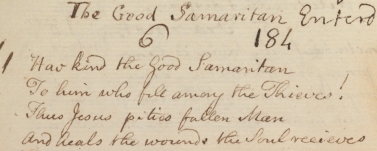 The Good Samaritan Enterd
6 184
1 How kind the Good Samaritan
To him who fell among the Thieves!
Thus Jesus pities fallen Man
And heals the wounds the Soul recieves